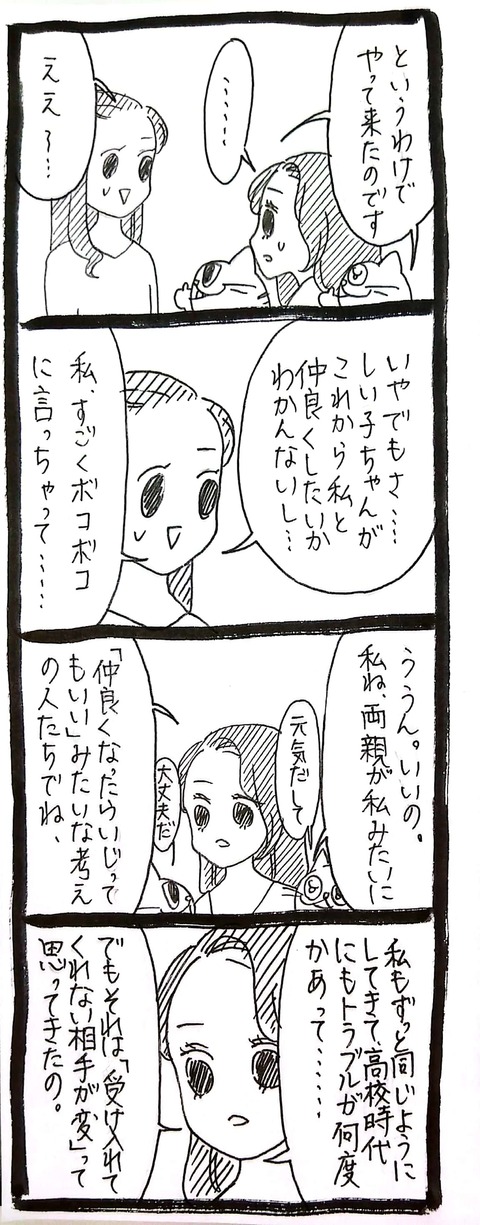 というわけで
やって来たのです
……
ええ〜…
いやでもさ……
しい子ちゃんが
これから私と
仲良くしたいか
わかんないし…
私、すごくボコボコ
に言っちゃって……
ううん。いいの。
私ね、両親が私みたいに
元気だして
大丈夫だ
「仲良くなったらいじって
もいい」みたいな考え
の人たちでね、
私もずっと同じように
してきて、高校時代
にもトラブルが何度
かあって……
でもそれは「受け入れて
くれない相手が変」って
思ってきたの。